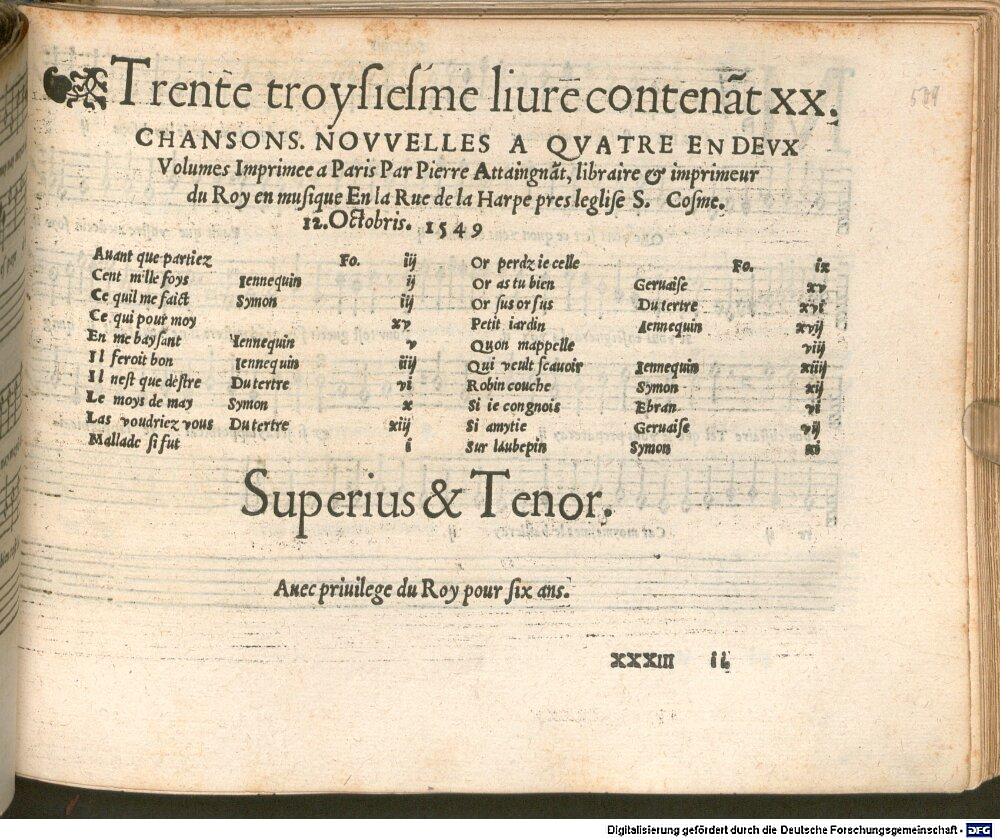 Trente troysiesme liure contenãt xx.
CHANSONS. NOVVELLES A QVATRE EN DEVX
Volumes Imprimee a Paris Par Pierre Attaingnãt, libraire & imprimeur
du Roy en musique En la Rue de la Harpe pres leglise S. Cosme.
12. Octobris. 1549
Auant que partiez Fo. iij
Cent mille foys Iennequin ij
Ce quil me faict Symon iij
Ce qui pour moy xv
En me baysant Iennequin v
Il feroit bon Iennequin iiij
Il nest que destre Du tertre vi
Le moys de may Symon x
Las voudriez vous Du tertre xiij
Mallade si fut i
Or perdz ie celle Fo. ix
Or as tu bien Geruaise xv
Or sus or sus Du tertre xvi
Petit iardin Iennequin xvij
Quon mappelle viij
Qui veult scauoir Iennequin xiiij
Robin couche Symon xij
Si ie congnois Ebran vi
Si amytie Geruaise vij
Sur laubepin Symon xi
Superius & Tenor.
Auec priuilege du Roy pour six ans.
XXXIII
Digitalisierung gefördert durch die Deutsche Forschungsgemeinschaft - DFG